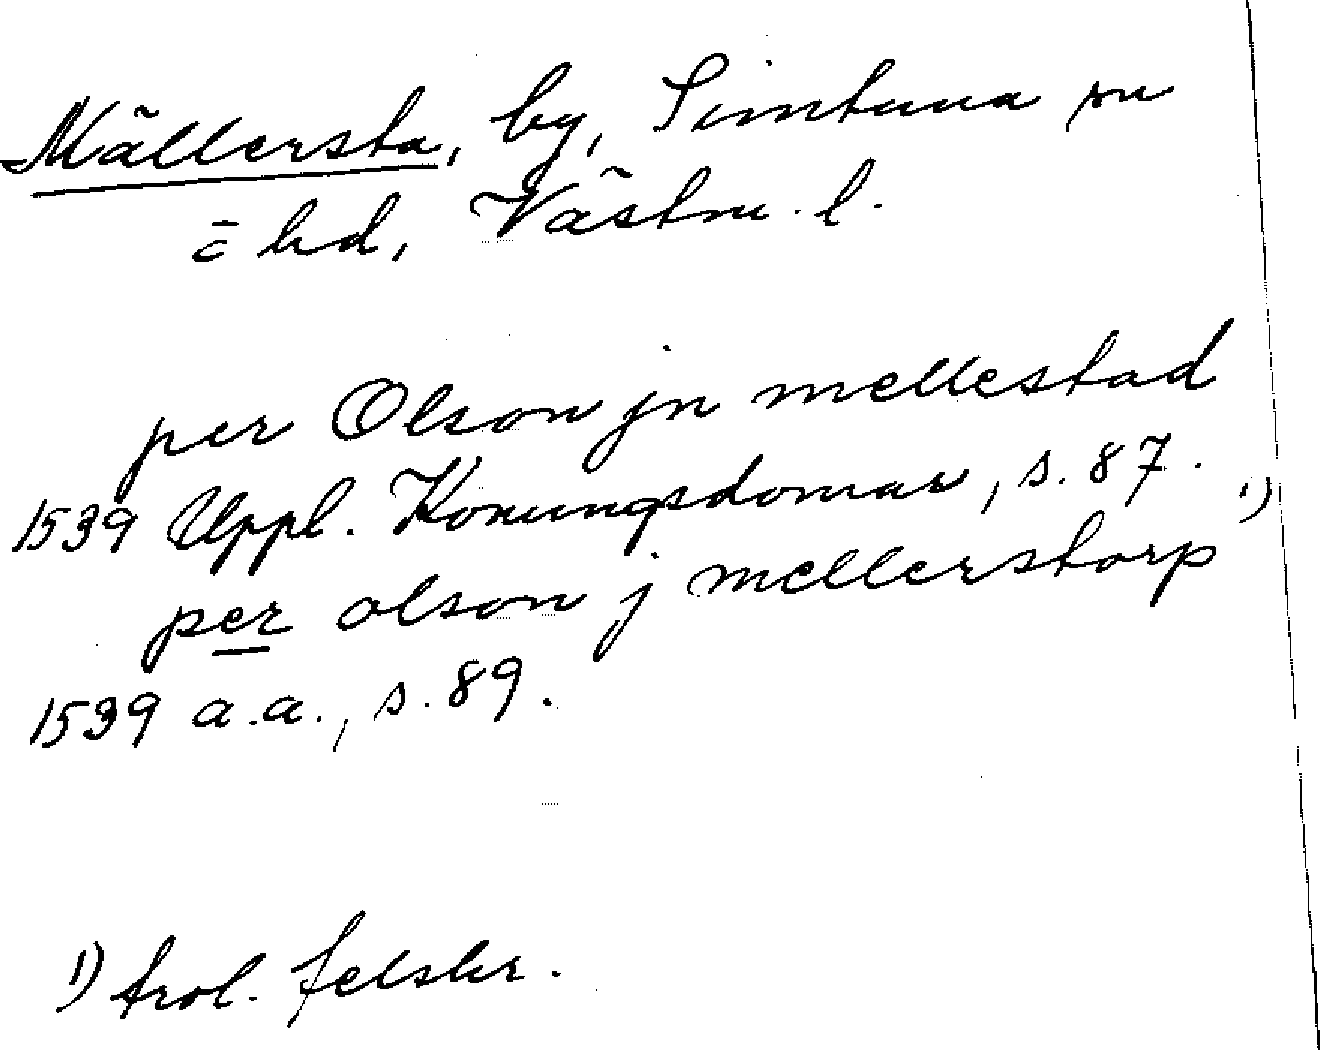 Mällersta, by, Simtuna sn
o hd, Västm. l.
per Olson jn mellestad
1539 Uppl. Konungsdomar, s. 87.
per olson j mellerstorp 1)
1539 a.a., s. 89.
1) trol. felskr.